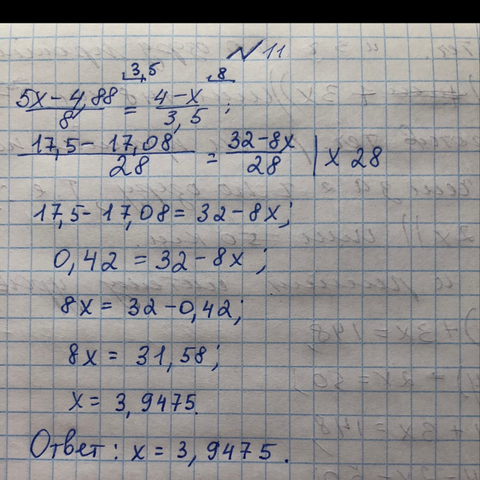 №11
3,5 8
5x-4,88/8 = 4-x/3,5;
17,5-17,08/28 = 32-8x/28 | x 28
17,5-17,08=32-8x;
0,42=32-8x;
8x=32-0,42;
8x=31,58;
x=3,9475.
Ответ: x=3,9475.